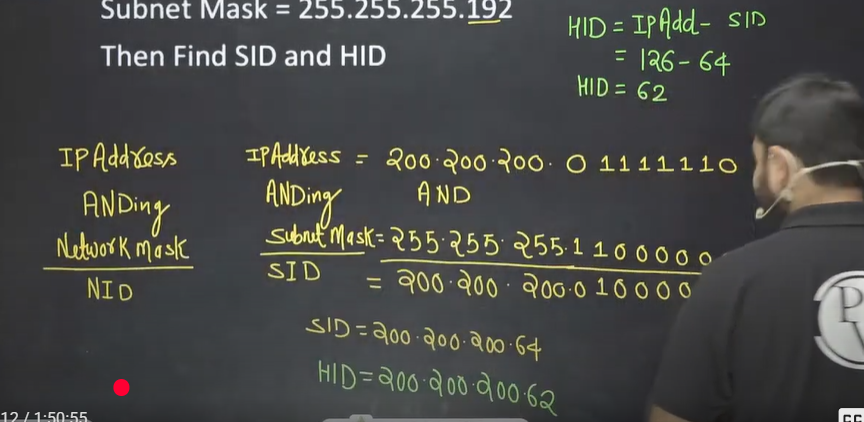 Subnet Mask = 255.255.255.192
Then Find SID and HID
HID = IP Add - SID
= 126 - 64
HID = 62
IP Address
ANDing
Network Mask
NID
IP Address = 200.200.200. 0 1 1 1 1 1 1 0
ANDing AND
Subnet Mask = 255.255.255.1 1 0 0 0 0 0
SID = 200.200.200.0 1 0 0 0 0
SID = 200.200.200.64
HID = 200.200.200.62
12 / 1:50:55